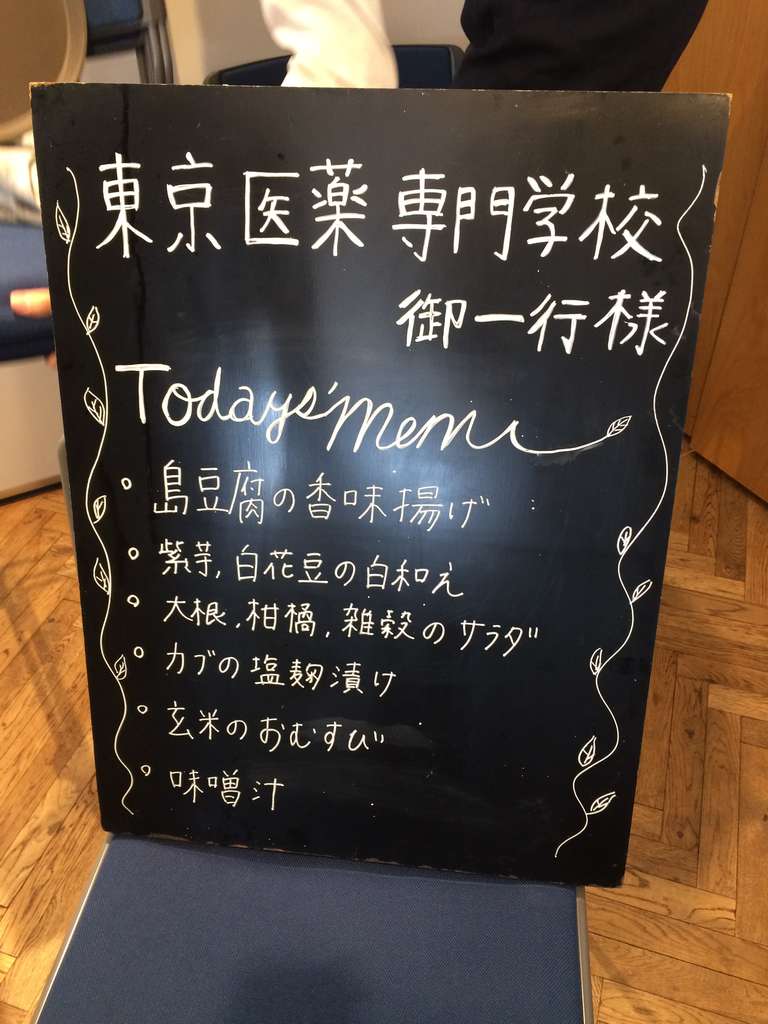 東京医薬専門学校
御一行様
Todays' Menu
・島豆腐の香味揚げ
・紫芋,白花豆の白和え
・大根,柑橘,雑穀のサラダ
・カブの塩麹漬け
・玄米のおむすび
・味噌汁